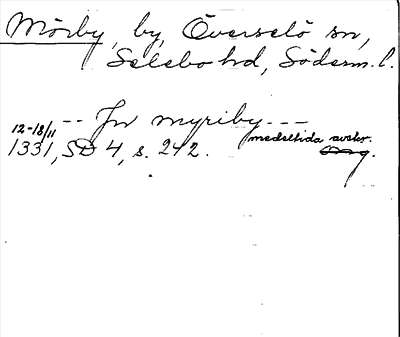 Mörby, by, Överselö sn,
Selebo hd, Söderm. l.
-- Jn myriby ---
12-18/11 medeltida avskr.
1331, SD 4, s. 242.